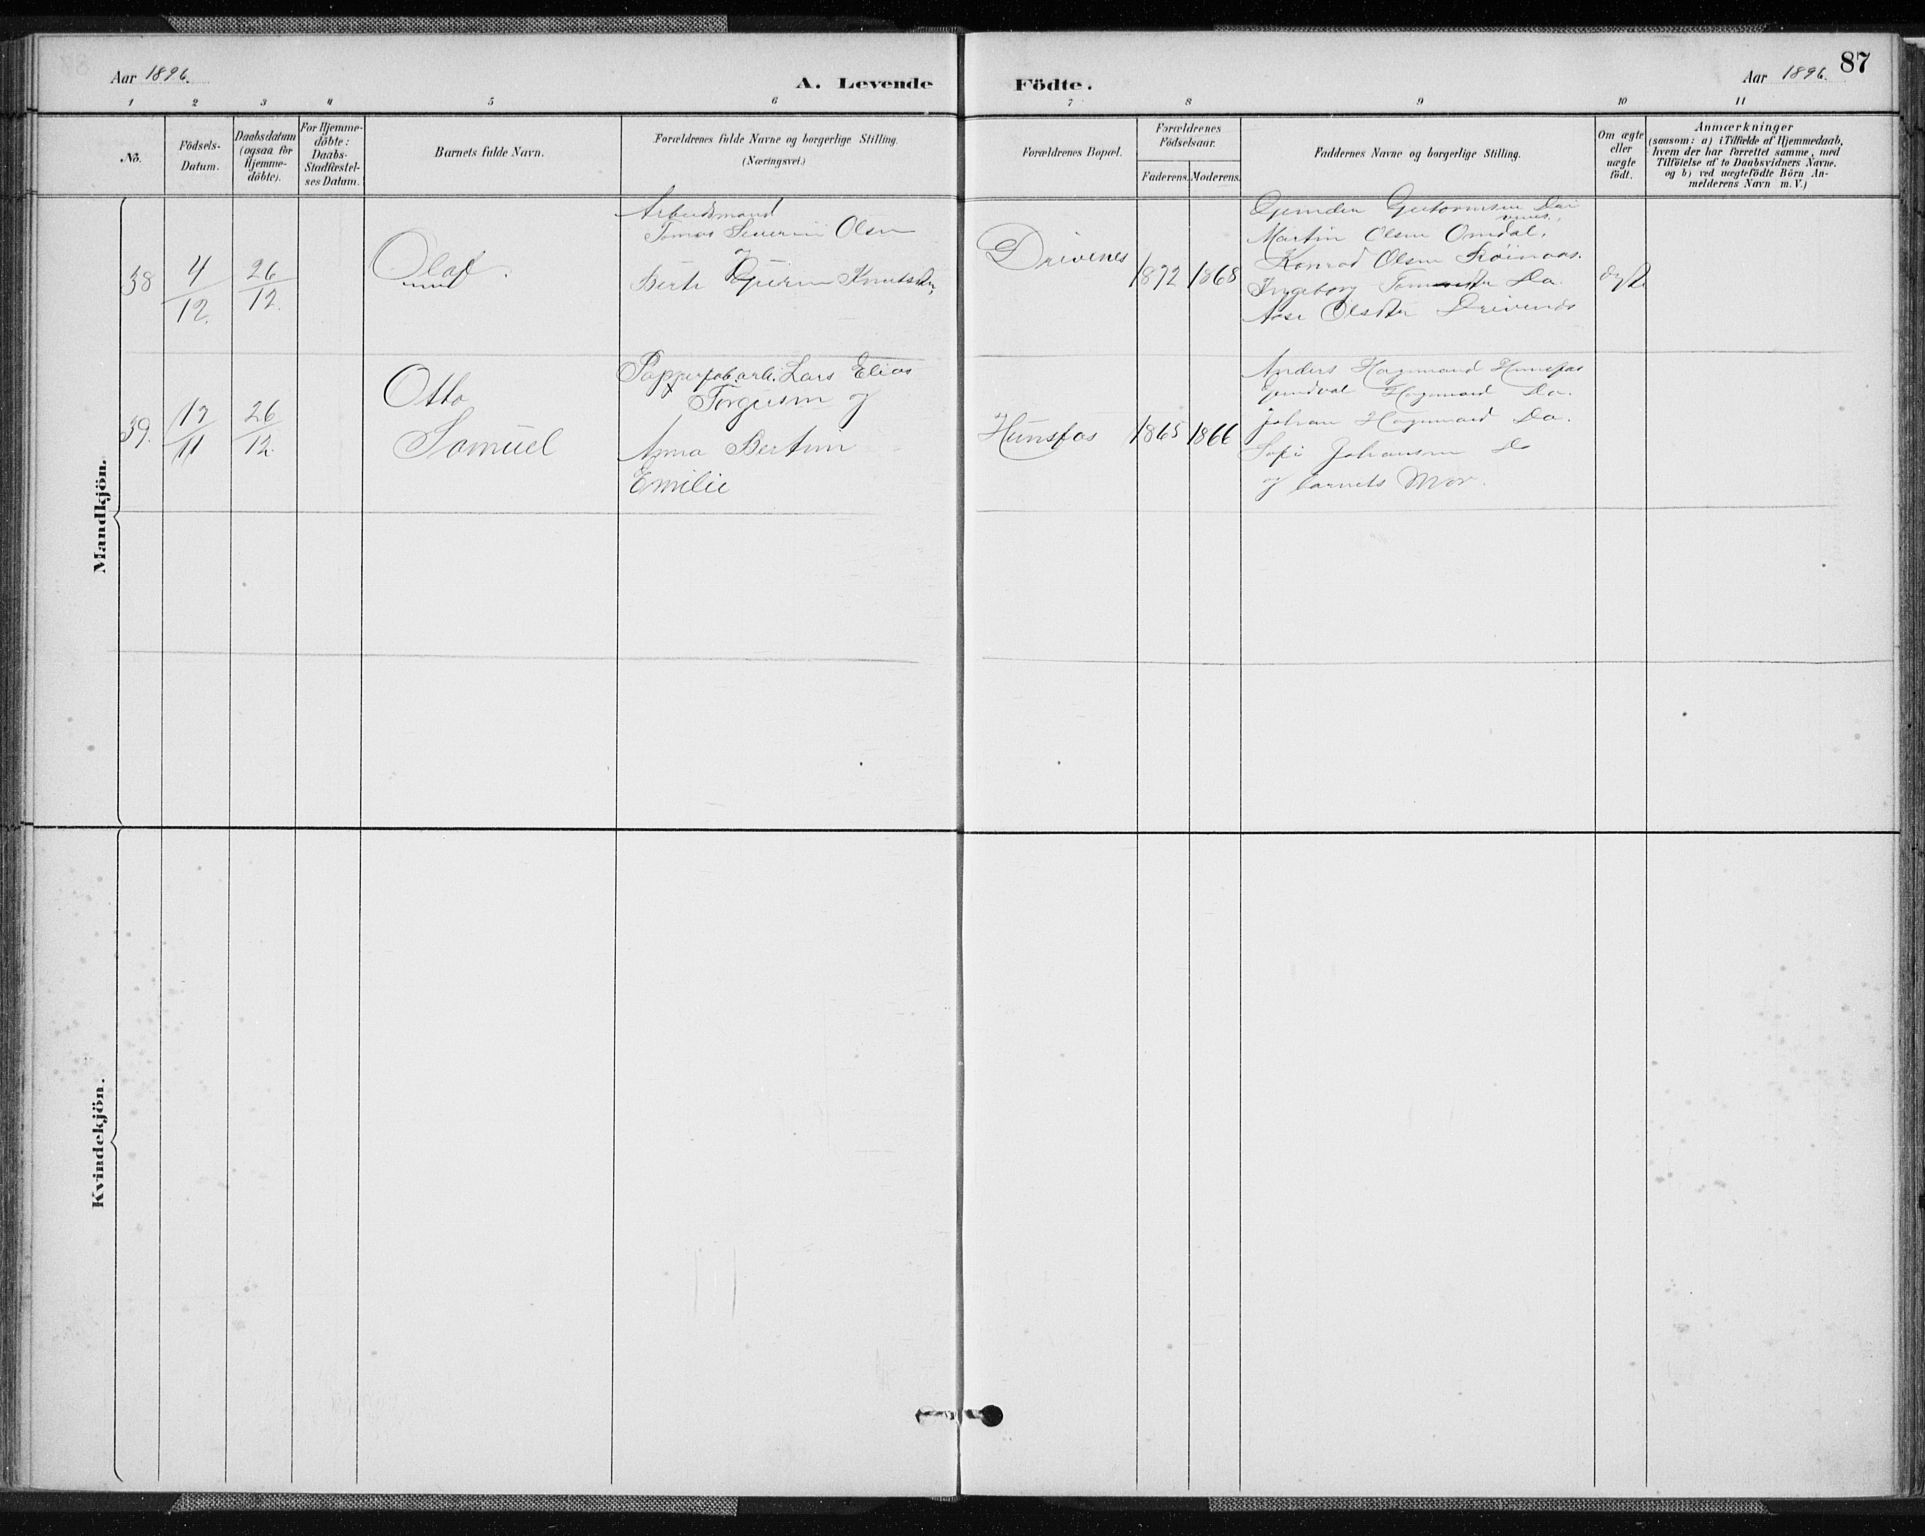 Aar 1896.
A. Levende Födte.
Aar 1896.
87
1 2 3 4 5 6 7 8 9 10 11
No.
Födsels-
Datum.
Daabsdatum
(ogsaa for
Hjemme-
döbte).
For Hjemme-
döbte:
Daabs-
Stadfæstel-
ses Datum.
Barnets fulde Navn.
Forældrenes fulde Navne og borgerlige Stilling.
(Næringsvei.)
Forældrenes Bopæl.
Forældrenes
Födselsaar.
Faderens. Moderens.
Faddernes Navne og borgerlige Stilling.
Om ægte
eller
uægte
födt.
Anmærkninger
(saasom: a) i Tilfælde af Hjemmedaab,
hvem der har forrettet samme, med
Tilföielse af to Daabsvidners Navne,
og b) ved uægtefödte Börn An-
melderens Navn m. V.)
Mandkjön.
38
4
12.
26
12.
Olaf.
Arbeidsmand
Tomas Severin Olsen
og
Berte Gurine Knutsdtr,
Drivenes
1872 1868
Guttormsen
Martin Olsen Omdal,
Konrad Olsen
Ingeborg Do.
Aase Olsdtr Drivenes
ægte
39.
26
12.
Otto
Samuel
Lars Elias
Torgusen og
Anna
Emilie
Hunsfos
1865 1866
Anders Hagemand Hunsfos
Hagemand Do.
Johan Hagemand Do.
Johansen Do
og barnets Mor.
Kvindekjön.